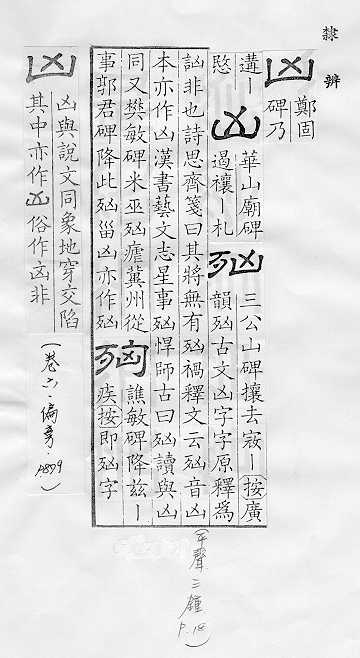 隸辨
凶 鄭固
碑乃
遘一
愍
凶 華山廟碑
過禳一札
𣧑 三公山碑攘去寇一按廣
韻𣧑古文凶字字原釋為
訩非也詩思齊箋曰其將無有𣧑禍釋文云𣧑音凶
本亦作凶漢書藝文志星事𣧑悍師古曰𣧑讀與凶
同又樊敏碑米巫𣧑瘧冀州從
事郭君碑降此𣧑甾凶亦作𣧑
譙敏碑降茲一
疾按即𣧑字
凶
凶與說文同象地穿交陷
其中亦作凶俗作㐫非
(卷六·偏旁·P.899)
(平聲三鍾P.18)